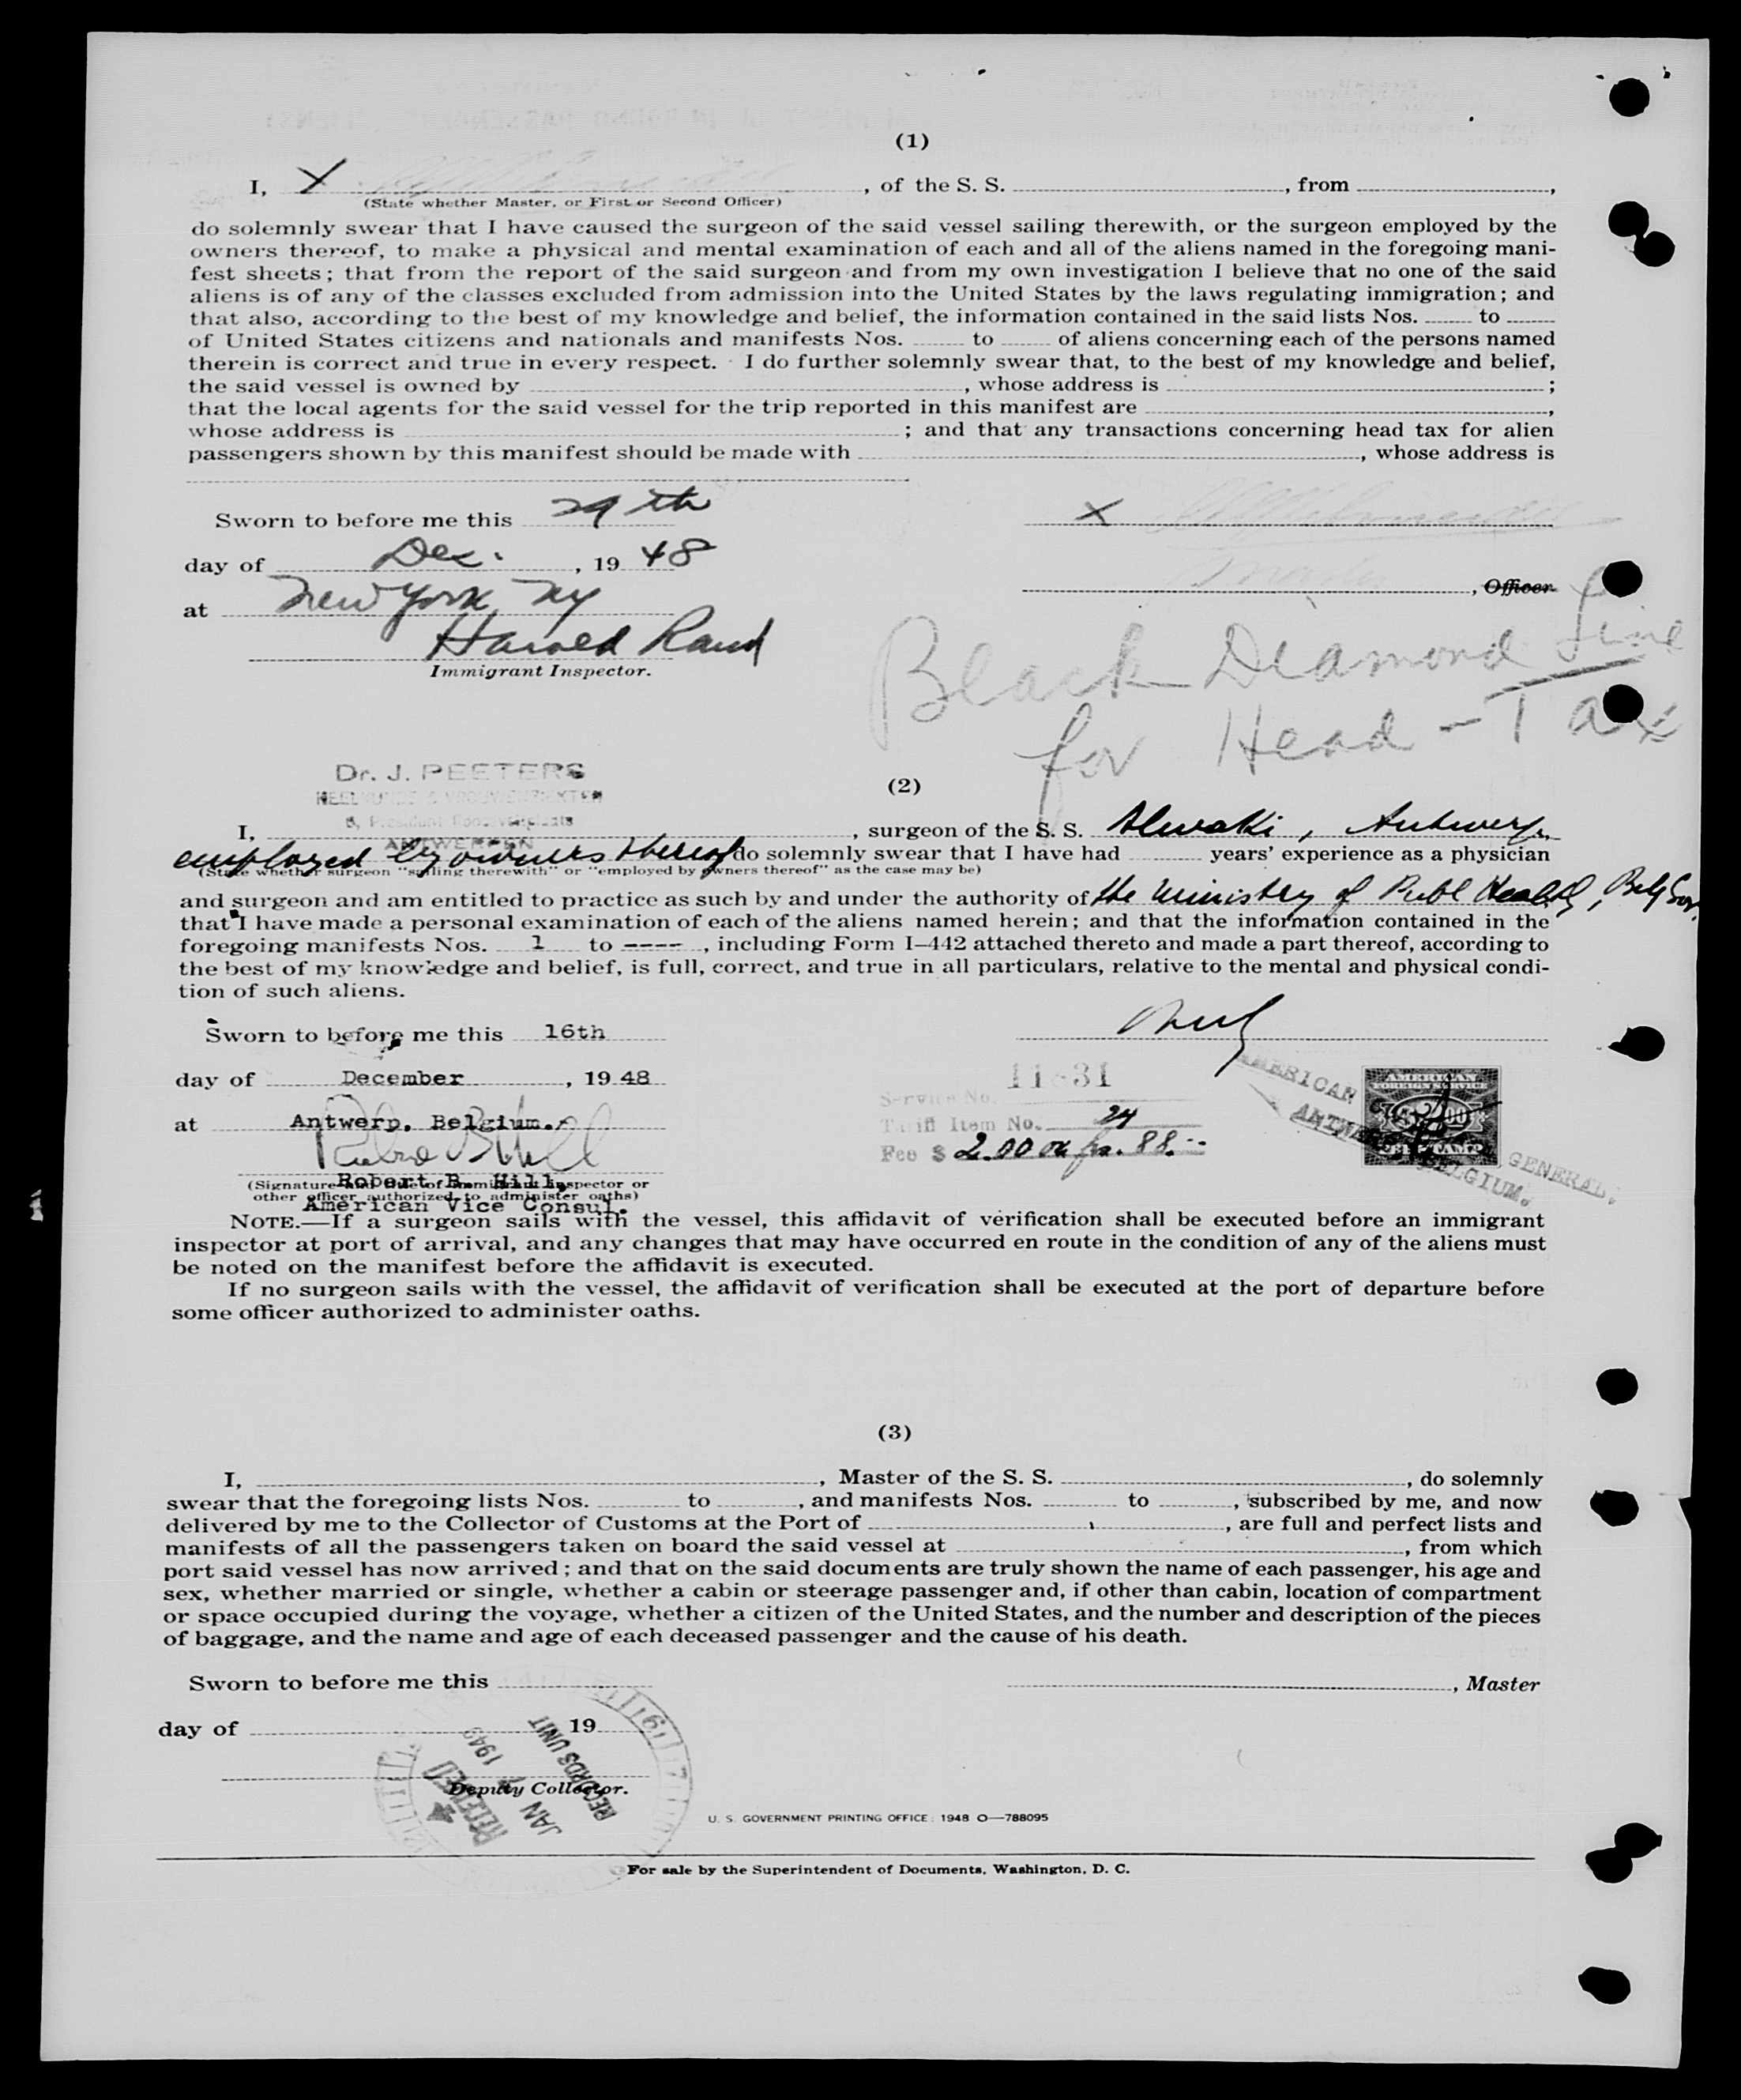 (1)
I, X , of the S. S. , from ,
(State whether Master, or First or Second Officer)
do solemnly swear that I have caused the surgeon of the said vessel sailing therewith, or the surgeon employed by the
owners thereof, to make a physical and mental examination of each and all of the aliens named in the foregoing mani-
fest sheets; that from the report of the said surgeon and from my own investigation I believe that no one of the said
aliens is of any of the classes excluded from admission into the United States by the laws regulating immigration; and
that also, according to the best of my knowledge and belief, the information contained in the said lists Nos. to
of United States citizens and nationals and manifests Nos. to of aliens concerning each of the persons named
therein is correct and true in every respect. I do further solemnly swear that, to the best of my knowledge and belief,
the said vessel is owned by , whose address is ;
that the local agents for the said vessel for the trip reported in this manifest are ,
whose address is ; and that any transactions concerning head tax for alien
passengers shown by this manifest should be made with , whose address is
Sworn to before me this 29th X
day of Dec. , 19 48
, Officer
at New York, NY
Harold Rand
Immigrant Inspector.
Black Diamond Line
for Head-Tax
Dr. J. PEETERS
ANTWERPEN
(2)
I, , surgeon of the S. S. Alwaki, Antwerp
employed by owners thereof do solemnly swear that I have had years' experience as a physician
(State whether surgeon "sailing therewith" or "employed by owners thereof" as the case may be)
and surgeon and am entitled to practice as such by and under the authority of the Ministry of Publ Health, Belg Gov.
that I have made a personal examination of each of the aliens named herein; and that the information contained in the
foregoing manifests Nos. 1 to ---- , including Form I–442 attached thereto and made a part thereof, according to
the best of my knowledge and belief, is full, correct, and true in all particulars, relative to the mental and physical condi-
tion of such aliens.
Sworn to before me this 16th
day of December , 19 48
at Antwerp, Belgium.
Robert B. Hill
(Signature and title of Immigrant Inspector or
Robert B. Hill,
other officer authorized to administer oaths)
American Vice Consul.
11-31
Service No.
Tariff Item No. 24
Fee $ 2.00 or frs. 88.--
AMERICAN
FOREIGN SERVICE
FEE STAMP
AMERICAN GENERAL,
ANTWERP, BELGIUM.
NOTE.—If a surgeon sails with the vessel, this affidavit of verification shall be executed before an immigrant
inspector at port of arrival, and any changes that may have occurred en route in the condition of any of the aliens must
be noted on the manifest before the affidavit is executed.
If no surgeon sails with the vessel, the affidavit of verification shall be executed at the port of departure before
some officer authorized to administer oaths.
(3)
I, , Master of the S. S. , do solemnly
swear that the foregoing lists Nos. to , and manifests Nos. to , subscribed by me, and now
delivered by me to the Collector of Customs at the Port of , are full and perfect lists and
manifests of all the passengers taken on board the said vessel at , from which
port said vessel has now arrived; and that on the said documents are truly shown the name of each passenger, his age and
sex, whether married or single, whether a cabin or steerage passenger and, if other than cabin, location of compartment
or space occupied during the voyage, whether a citizen of the United States, and the number and description of the pieces
of baggage, and the name and age of each deceased passenger and the cause of his death.
Sworn to before me this
, Master
day of 19
Deputy Collector.
RECEIVED
JAN 1949
RECORDS UNIT
U. S. GOVERNMENT PRINTING OFFICE: 1948 O—788095
For sale by the Superintendent of Documents, Washington, D. C.